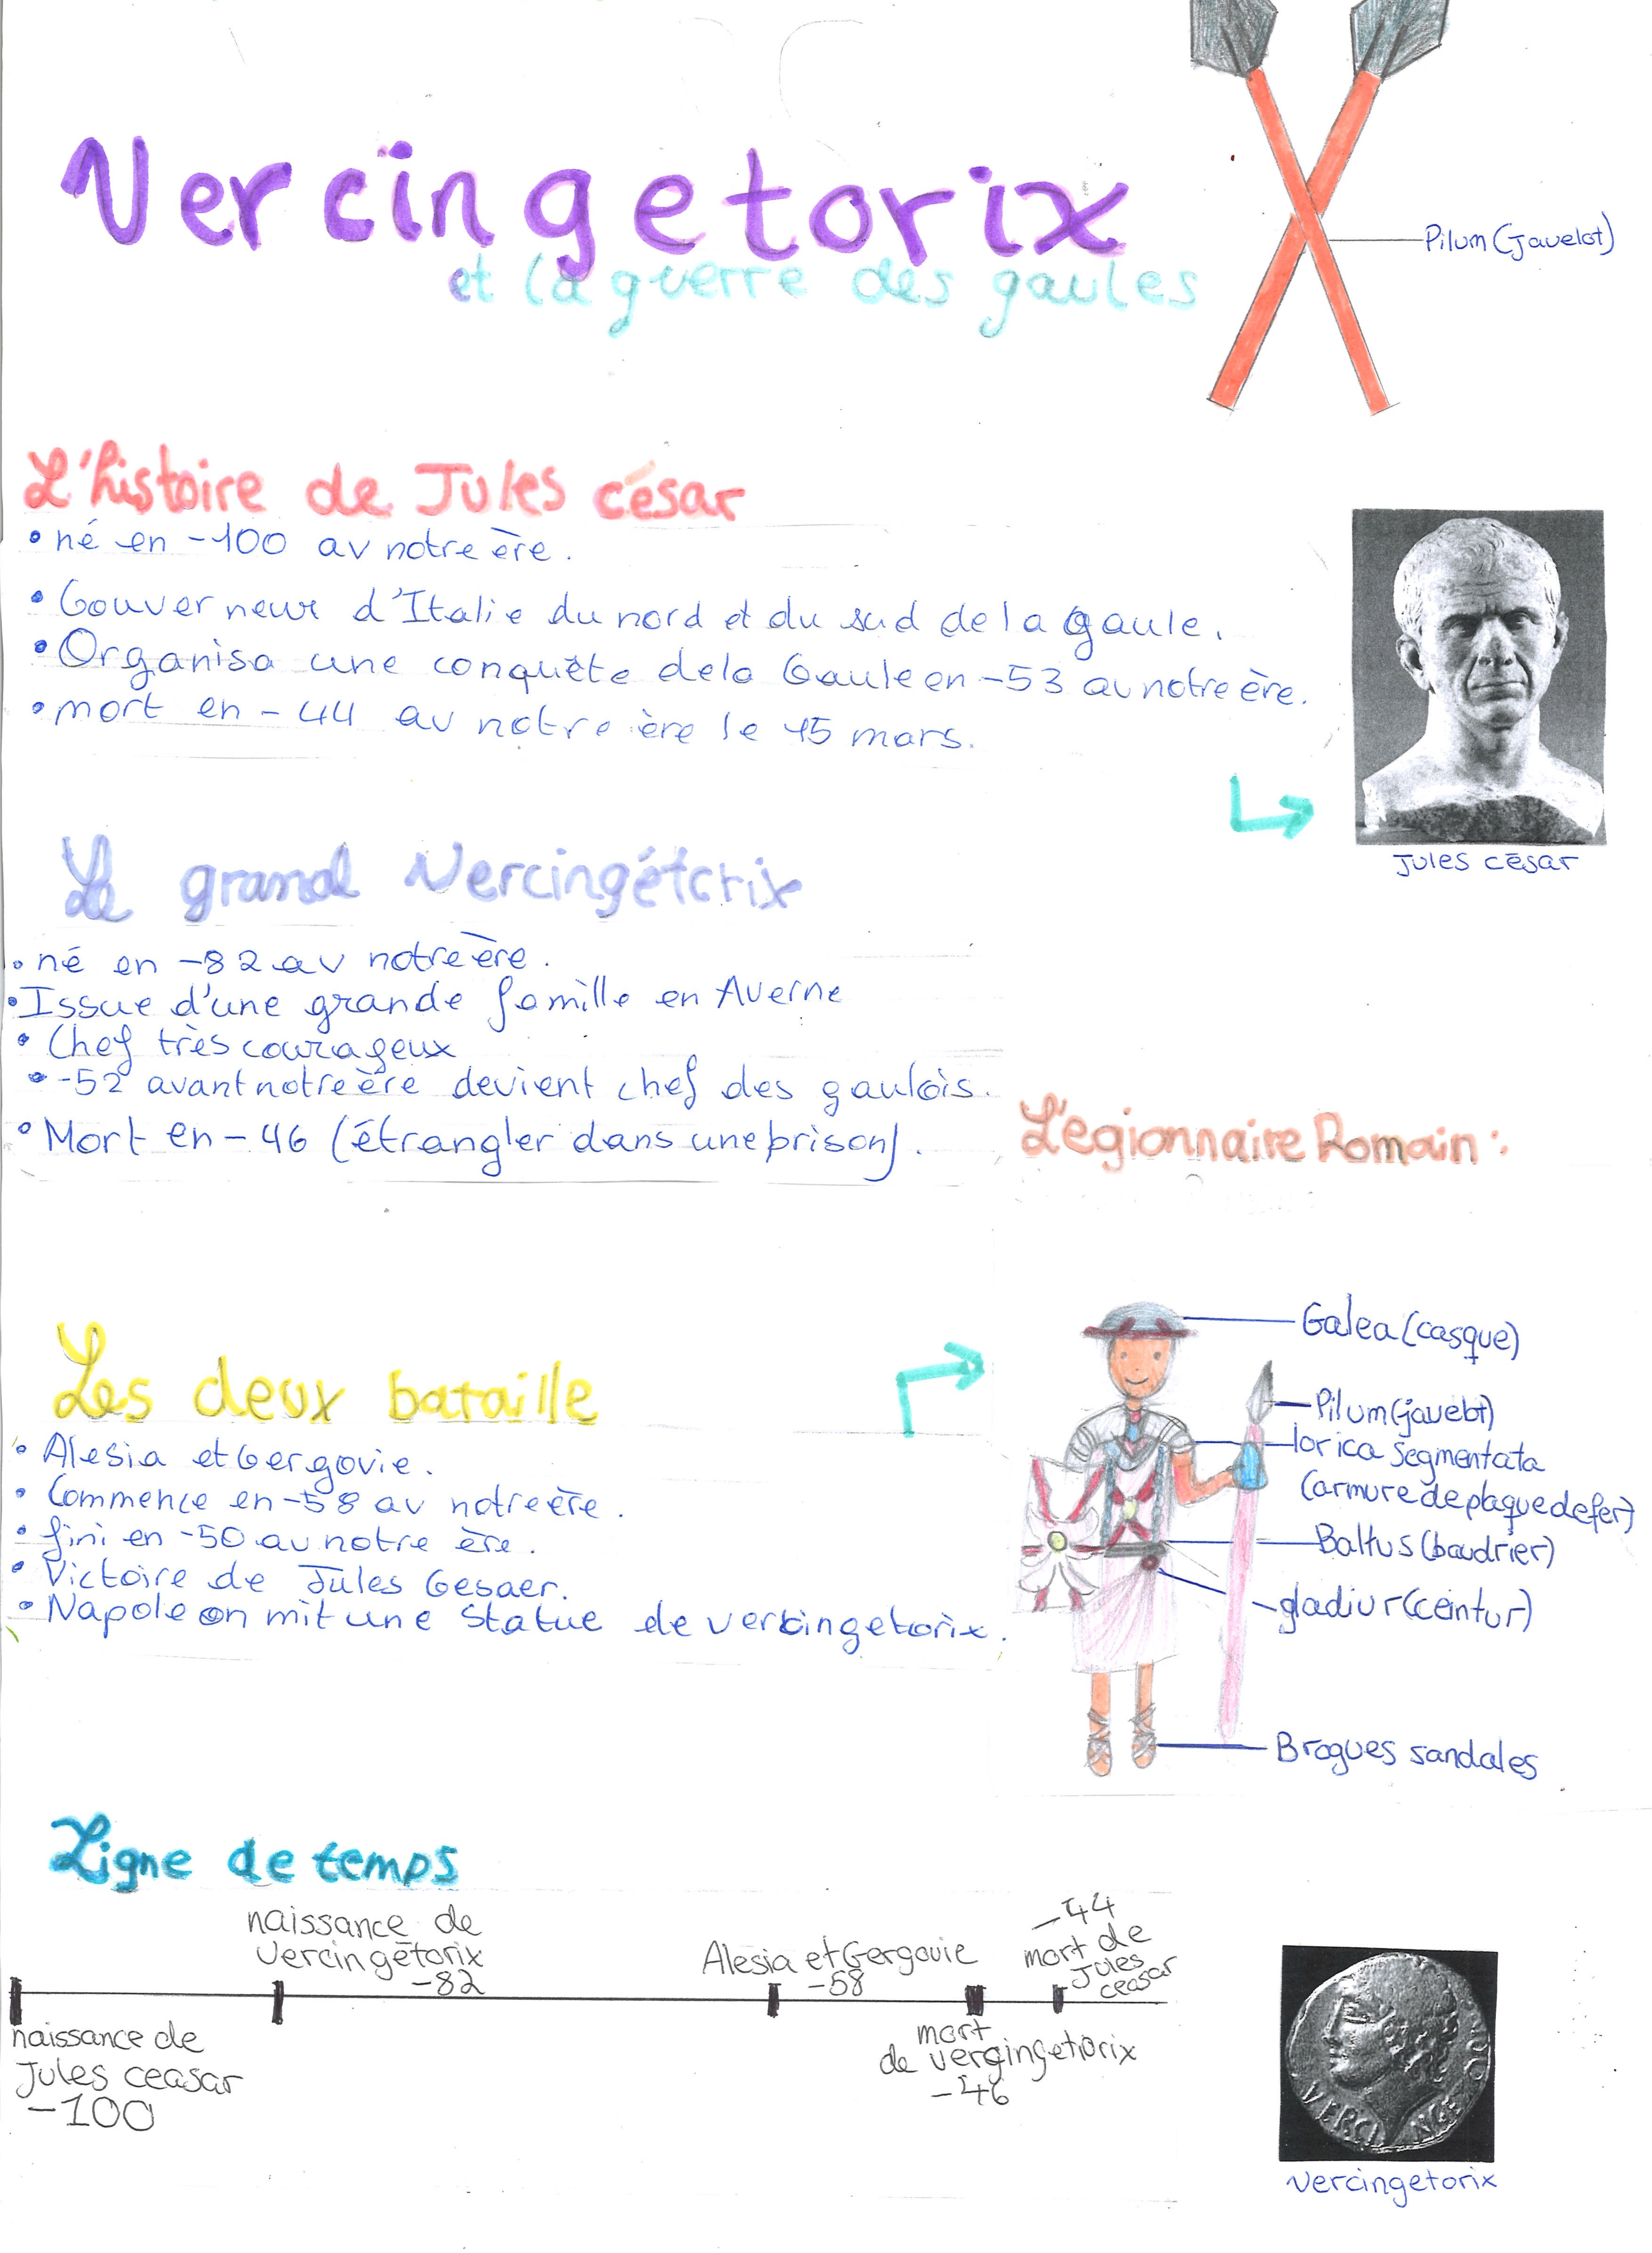 Vercingetorix
et la guerre des gaules
Pilum (Javelot)
L'histoire de Jules césar
• né en -100 av notre ère.
• Gouverneur d'Italie du nord et du sud de la gaule.
• Organisa une conquête de la Gaule en -53 av notre ère.
• mort en - 44 av notre ère le 15 mars.
Jules césar
Le grand Vercingétorix
• né en -82 av notre ère.
• Issue d'une grande famille en Averne
• Chef très courageux
• -52 avant notre ère devient chef des gaulois.
• Mort en - 46 (étrangler dans une prison).
L'égionnaire Romain :
Galea (casque)
Pilum (javelot)
lorica segmentata
(armure de plaque de fer)
Baltus (baudrier)
gladiur (ceintur)
Brogues sandales
Les deux bataille
• Alesia et Gergovie.
• Commence en -58 av notre ère.
• fini en -50 av notre ère.
• Victoire de Jules Cesaer.
• Napoleon mit une statue de vercingetorix.
Ligne de temps
naissance de
Jules ceasar
-100
naissance de
Vercingétorix
-82
Alesia et Gergovie
-58
mort
de vergingetorix
-46
-44
mort de
Jules
ceasar
VERCINGE
vercingetorix